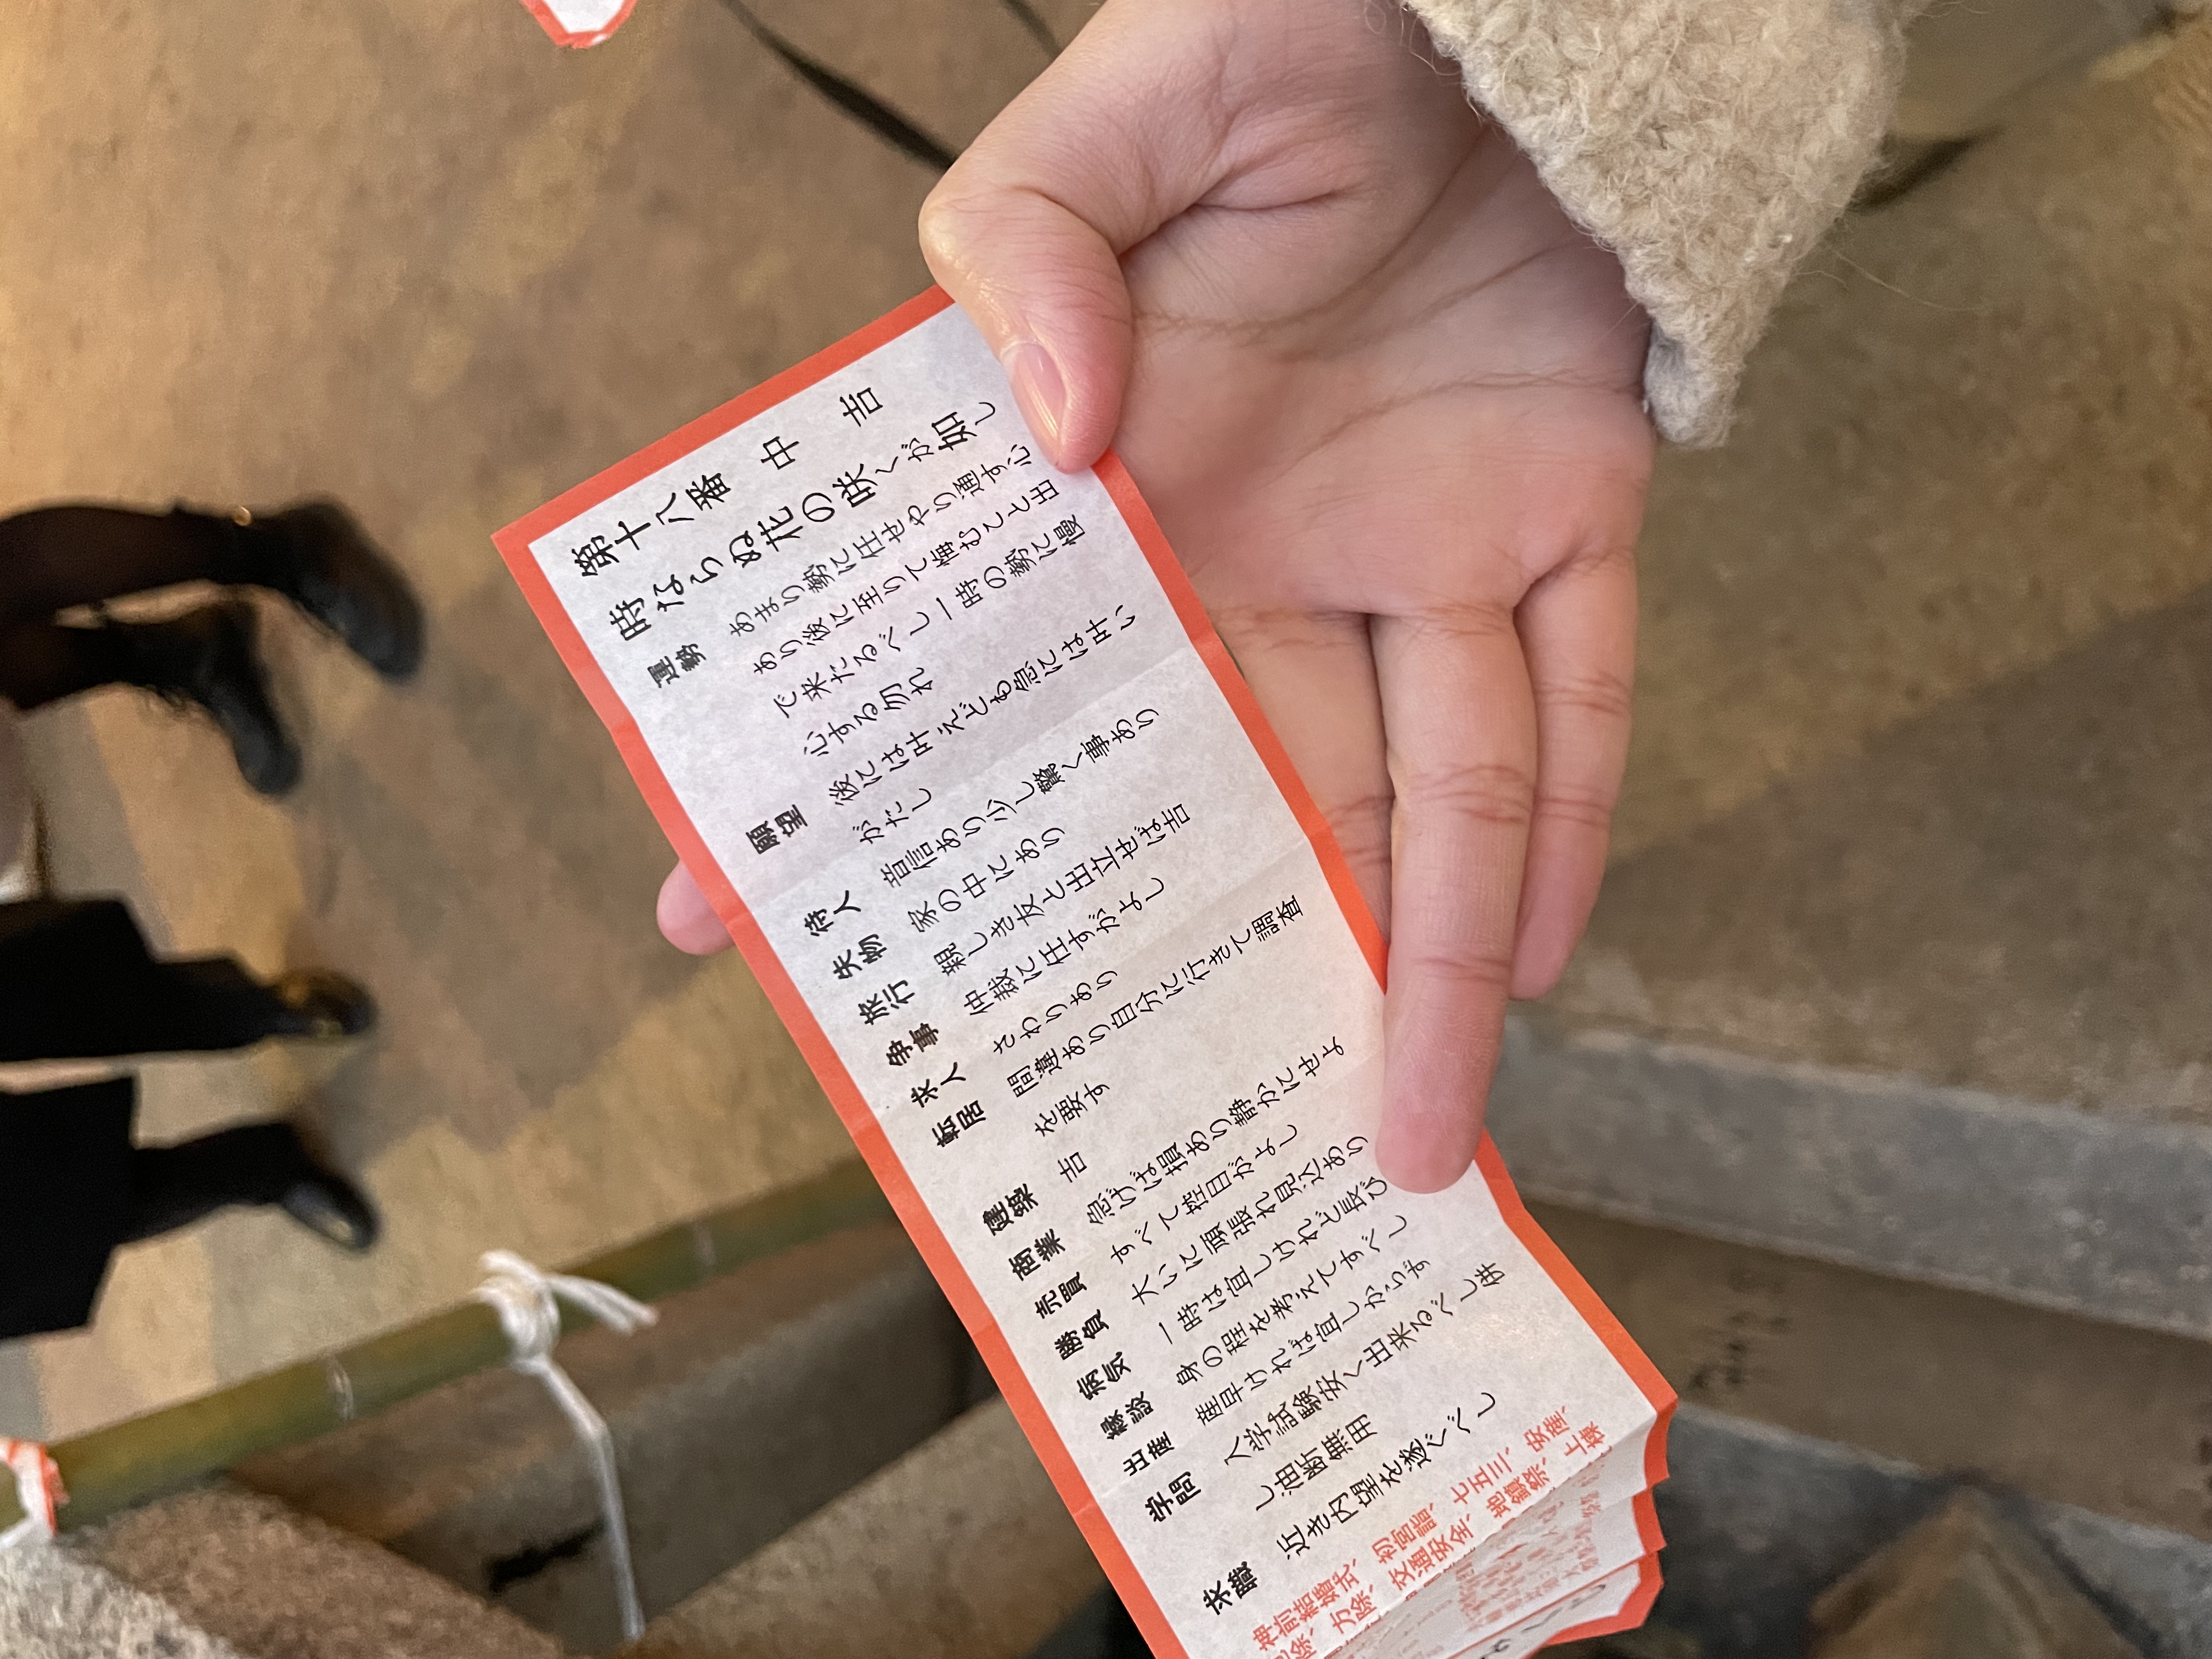 第十八番 中 吉
時ならぬ花の咲くが如し
運勢 あまり勢に任せやり通す心
あり後に至りて悔むこと出
で来たるべし一時の勢に慢
心する勿れ
願望 後には叶えども急には叶い
がたし
待人 音信あり少し驚く事あり
失物 家の中にあり
旅行 親しき友と出立せば吉
争事 仲裁に任すがよし
求人 さわりあり
転居 間違あり自分に行きて調査
を要す
建築 吉
商業 急げば損あり静かにせよ
売買 すべて控目がよし
勝負 大いに頑張れ見込あり
病気 一時は宜しけれど長び
縁談 身の程を考えてすべし
出産 産早ければ宜しからず
学問 入学試験安く出来るべし併
し油断無用
求職 近き内望を遂ぐべし
神前結婚式、初宮詣、七五三、安産、
除、方除、交通安全、地鎮祭、上棟